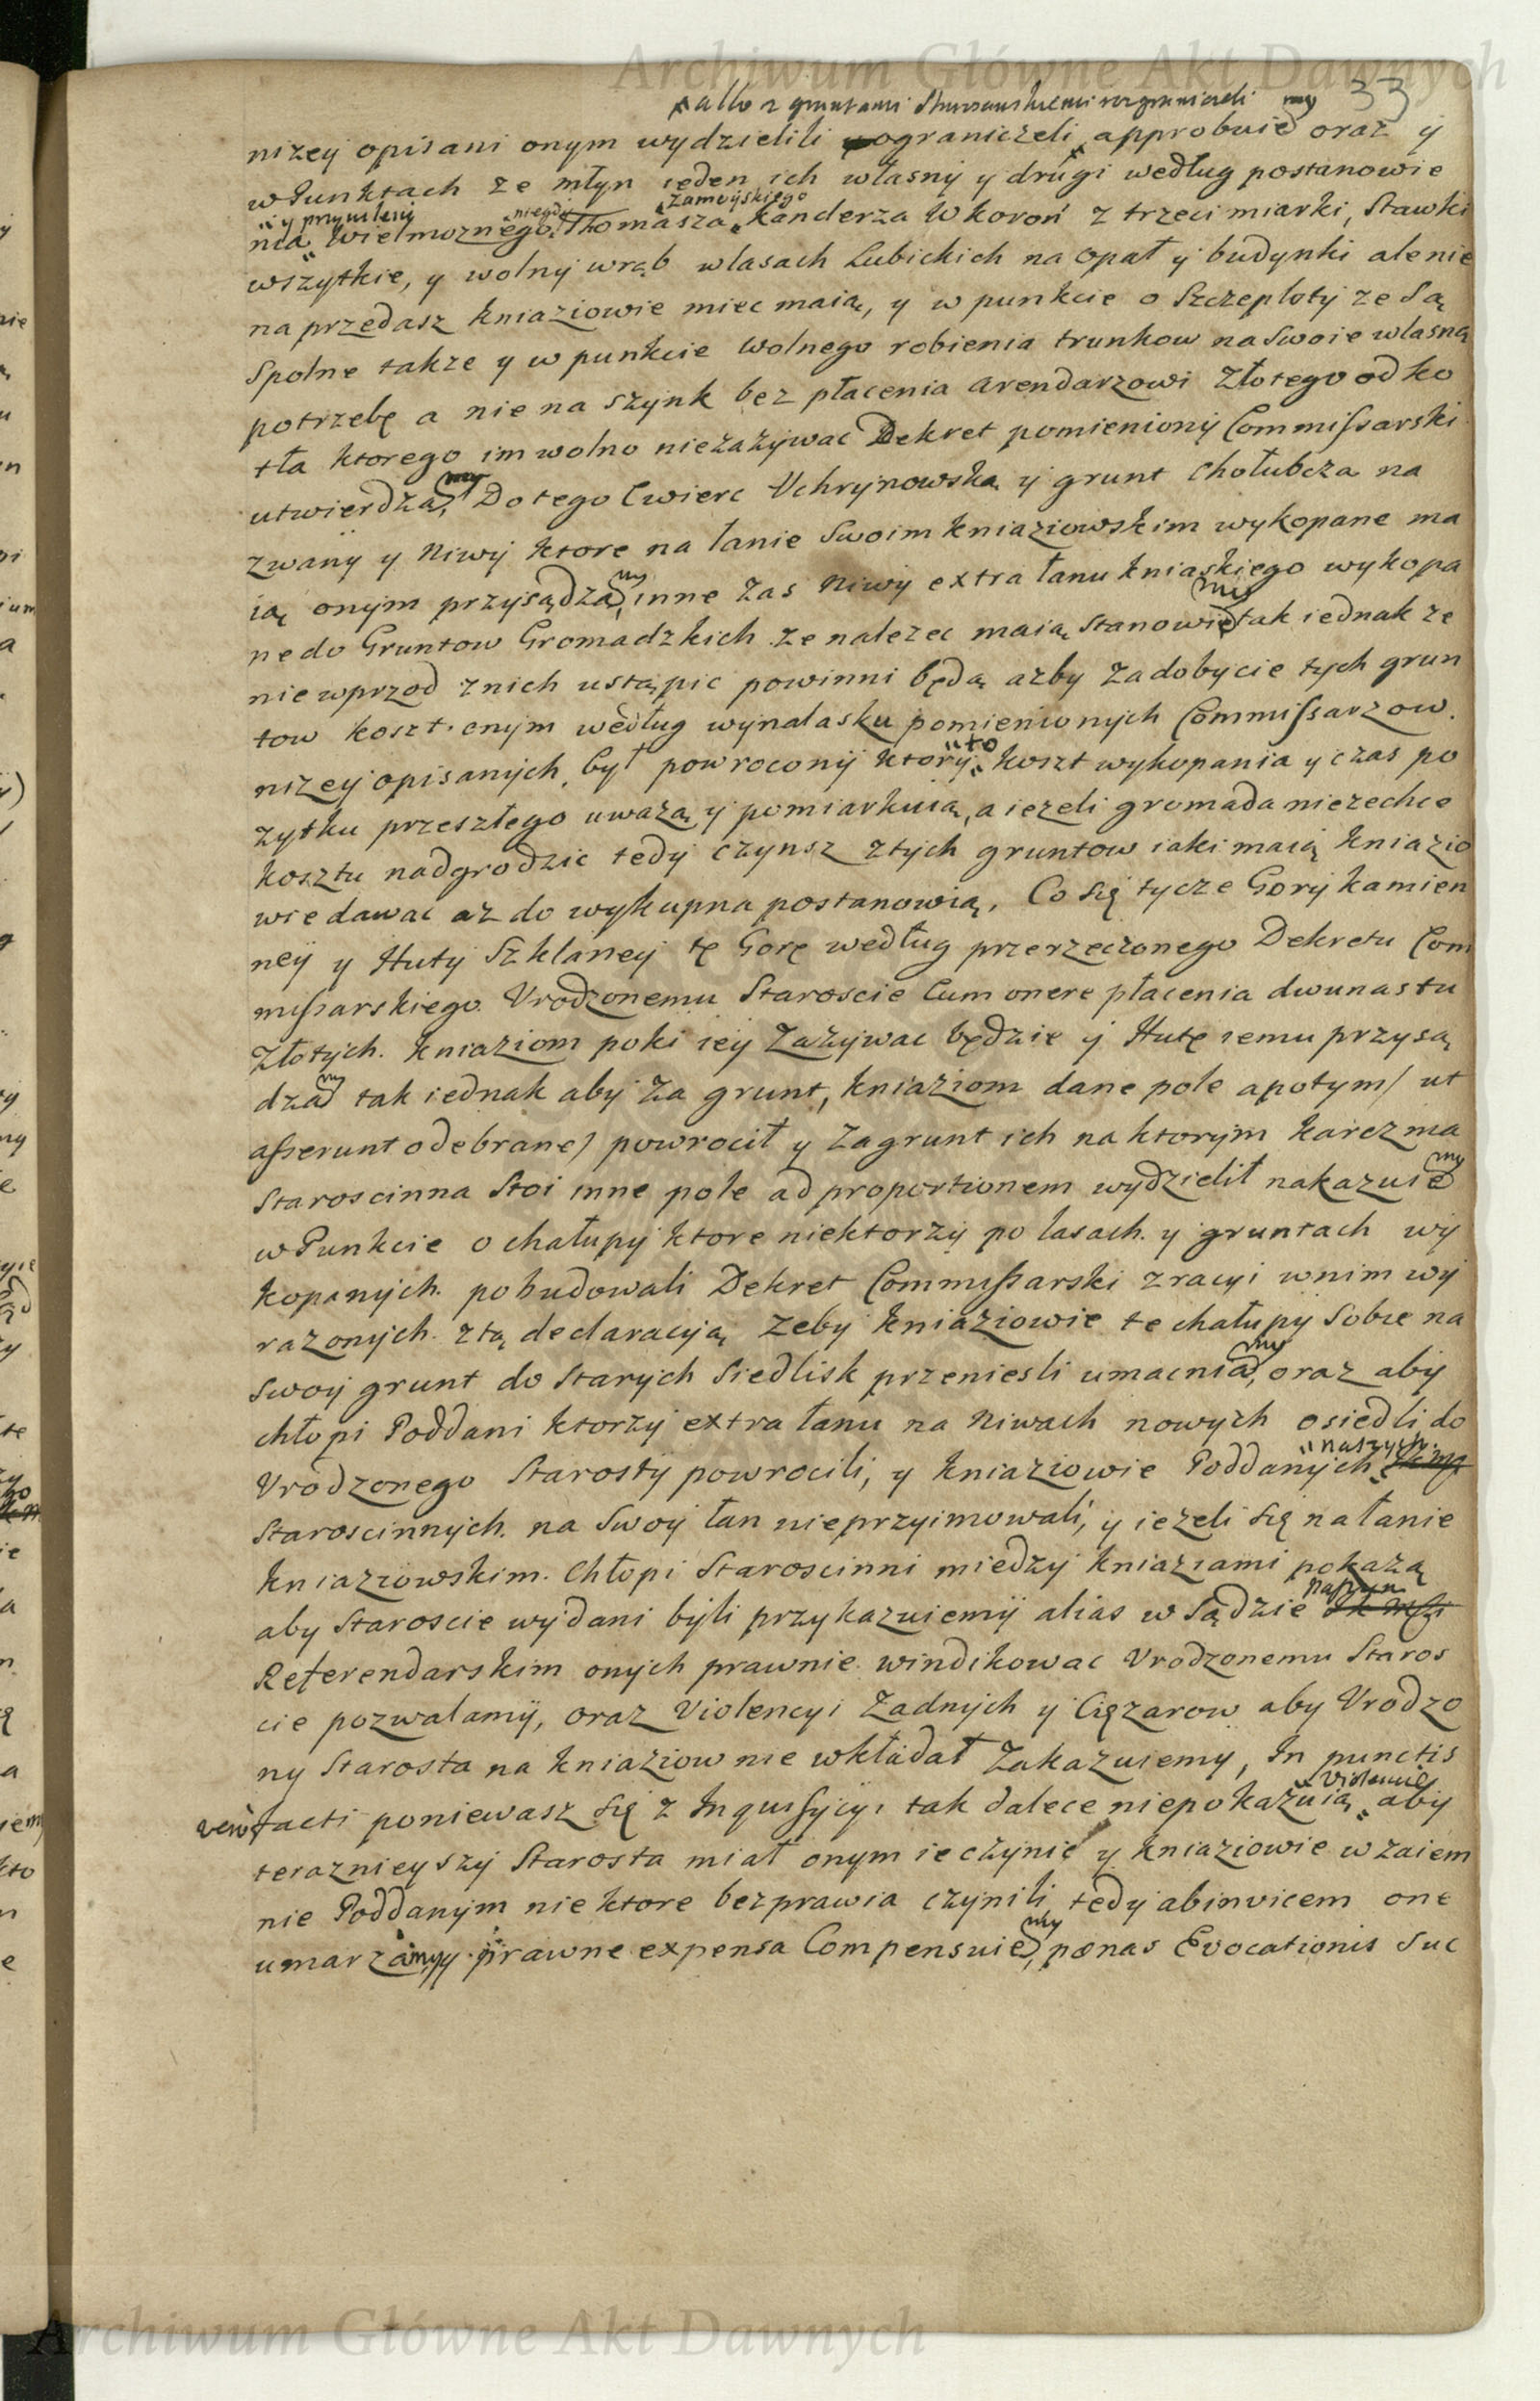 Archiwum Główne Akt Dawnych
33
albo z gruntami rozgraniczeli my
nizey opisani onym wydzielili ograniczeli approbuie oraz y
w Punktach ze młyn ieden ich własny y drugi według postanowie
y przywileiy niegdy Zamoyskiego
nia Wielmoznego Thomasza Kanclerza W Koron z trzeci miarki, Stawki
wszytkie, y wolny wrąb w lasach Lubickich na opał y budynki ale nie
na przedasz kniaziowie miec maią, y w punkcie o Szczeploty ze Są
Spolne takze y w punkcie wolnego robienia trunkow na Swoie własną
potrzebę a nie na szynk bez płacenia arendarzowi Złotego od ko
tła ktorego im wolno niezazywac Dekret pomieniony Commissarski
my
utwierdza, Do tego Cwierc Uchrynowską y grunt Chołubcza na
zwany y Niwy ktore na łanie Swoim kniaziowskim wykopane ma
my
ią onym przysądza, inne zas Niwy extra łanu kniaskiego wykopa
my
ne do Gruntow Gromadzkich ze nalezec maią Stanowie tak iednak ze
nie wprzod z nich ustąpic powinni będą azby za dobycie tych grun
tow koszt onym według wynalasku pomienionych Commissarzow
to
nizey opisanych, był powrocony ktory koszt wykopania y czas po
zytku przeszłego uwazą y pomiarkuią, a iezeli gromada niezechce
kosztu nadgrodzic tedy czynsz z tych gruntow iaki maią kniazio
wie dawac az do wykupna postanowią, Co Się tycze Gory kamien
ney y Huty Szklaney tę Gorę według przerzeczonego Dekretu Com
missarskiego Urodzonemu Staroscie Cum onere płacenia dwunastu
Złotych kniaziom poki iey Zazywac będzie y Hutę iemu przysą
my
dza tak iednak aby za grunt, kniaziom dane pole a potym / ut
asserunt odebrane) powrocił y Za grunt ich na ktorym karczma
my
Staroscinna Stoi inne pole ad proportionem wydzielił nakazuie
w Punkcie o chałupy ktore niektorzy po lasach y gruntach wy
kopanych pobudowali Dekret Commissarski z racyi w nim wy
razonych z tą declaracyią Zeby kniaziowie te chałupy Sobie na
my
Swoy grunt do Starych Siedlisk przeniesli umacnia, oraz aby
chłopi Poddani ktorzy extra łanu na Niwach nowych osiedli do
naszych
Urodzonego Starosty powrocili, y kniaziowie Poddanych
Staroscinnych na Swoy łan nieprzyimowali, y iezeli Się na łanie
kniaziowskim Chłopi Staroscinni miedzy kniaziami pokazą
naszym
aby Staroscie wydani byli przykazuiemy alias w Sądzie
Referendarskim onych prawnie windikowac Urodzonemu Staros
cie pozwalamy, oraz Violencyi Zadnych y Cięzarow aby Urodzo
ny Starosta na kniaziow nie wkładał Zakazuiemy, In punctis
Violencie
vero facti poniewasz Się z Inquisycyi tak dalece niepokazuią aby
teraznieyszy Starosta miał onym ie czynic y kniaziowie wzaiem
nie Poddanym niektore bezprawia czynili tedy abinvicem one
my
umarzamy prawne expensa Compensuie, pœnas Evocationis Suc
Archiwum Główne Akt Dawnych